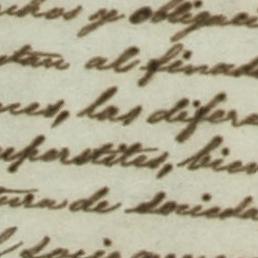 y obligaci
stan al finad
ces, las difere
uperstites, bien
tura de socieda